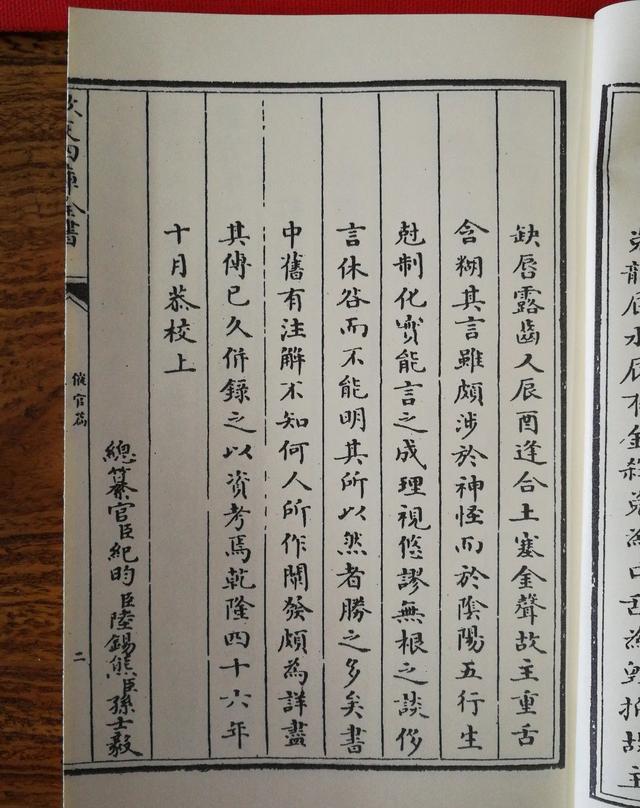 龍辰水辰有金殺兌為口舌為毀折故主
缺唇露齒人辰酉逢合土塞金聲故主重舌
含糊其言雖頗涉於神怪而於陰陽五行生
尅制化實能言之成理視悠謬無根之談侈
言休咎而不能明其所以然者勝之多矣書
中舊有注解不知何人所作闡發頗為詳盡
其傳已久併錄之以資考焉乾隆四十六年
十月恭校上
總纂官臣紀昀臣陸錫熊臣孫士毅
欽定四庫全書
催官篇
二